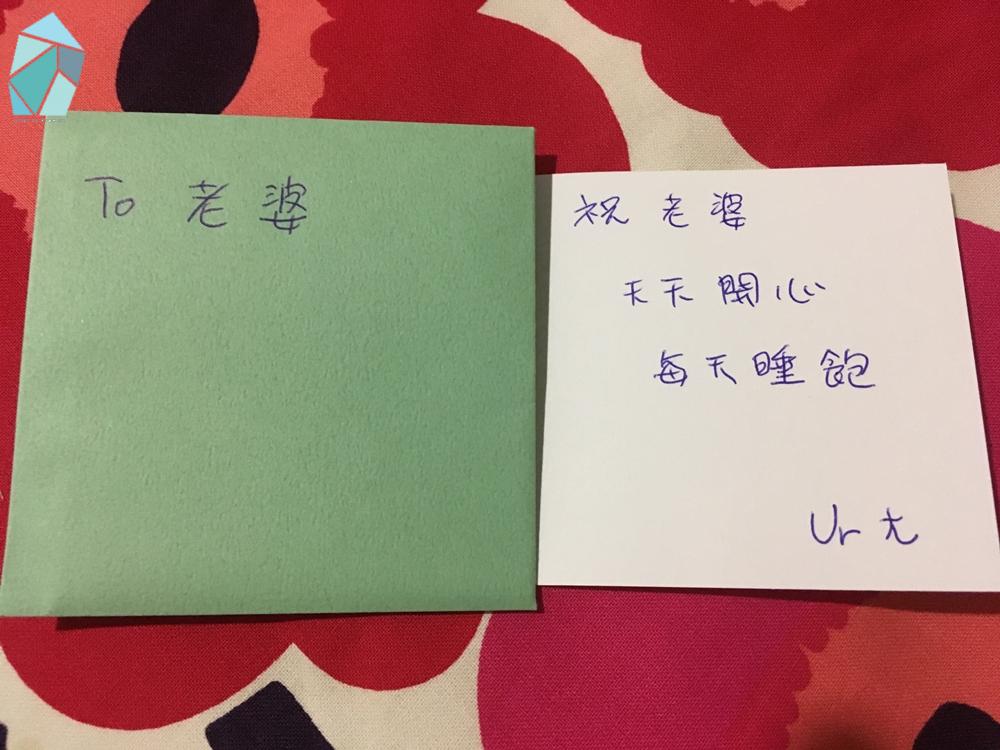 To 老婆
祝 老婆
天天開心
每天睡飽
Ur ㄤ